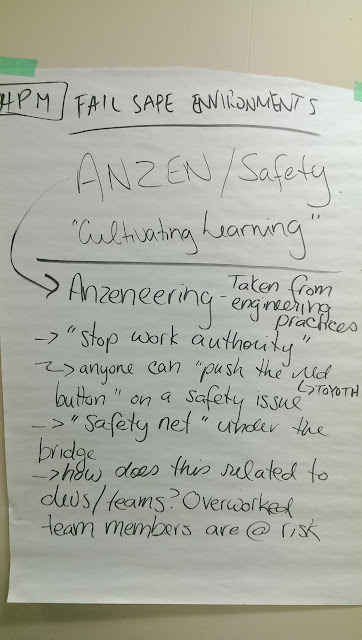 4PM FAIL SAFE ENVIRONMENTS
ANZEN/Safety.
"Cultivating Learning"
Anzeneering - Taken from
engineering
practices
-> "stop work authority"
-> anyone can "push the red
button" on a safety issue ↳TOYOTA
-> "safety net" under the
bridge
-> how does this related to
devs/teams? Overworked
team members are @ risk